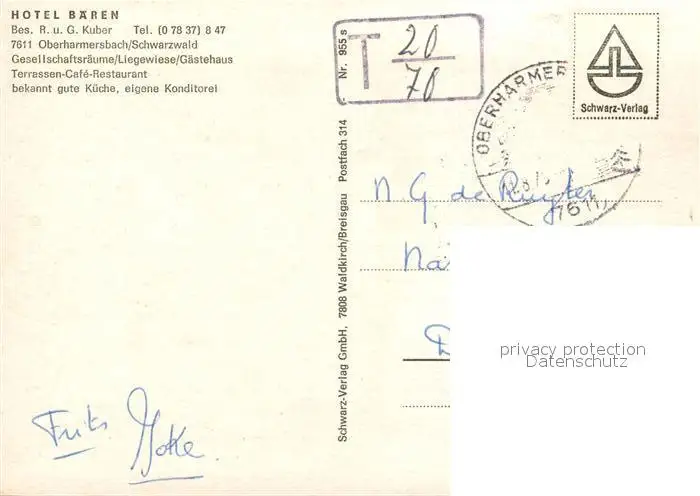 HOTEL BÄREN
Bes. R. u. G. Kuber Tel. (0 78 37) 8 47
7611 Oberharmersbach/Schwarzwald
Gesellschaftsräume/Liegewiese/Gästehaus
Terrassen-Café-Restaurant
bekannt gute Küche, eigene Konditorei
T 20
70
Schwarz-Verlag
OBERHARMER
7611
Schwarz-Verlag GmbH, 7808 Waldkirch/Breisgau Postfach 314 - Nr. 955 s
N. G de Ruyter
Na
D
privacy protection
Datenschutz
Frits